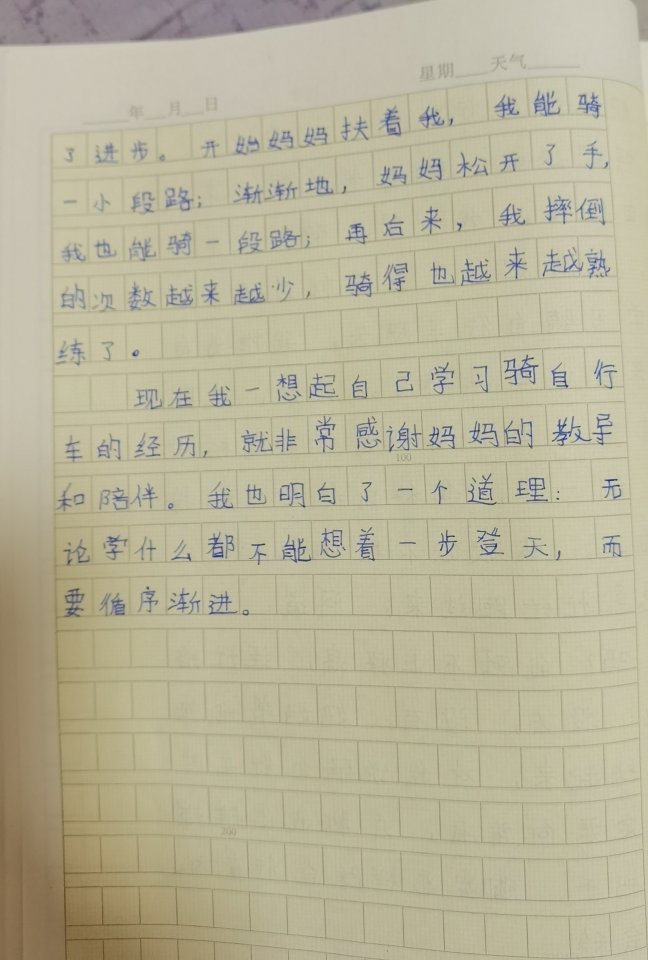 年 月 日 星期 天气
了进步。开始妈妈扶着我，我能骑
一小段路；渐渐地，妈妈松开了手，
我也能骑一段路；再后来，我摔倒
的次数越来越少，骑得也越来越熟
练了。
现在我一想起自己学习骑自行
车的经历，就非常感谢妈妈的教导
100
和陪伴。我也明白了一个道理：无
论学什么都不能想着一步登天，而
要循序渐进。
200